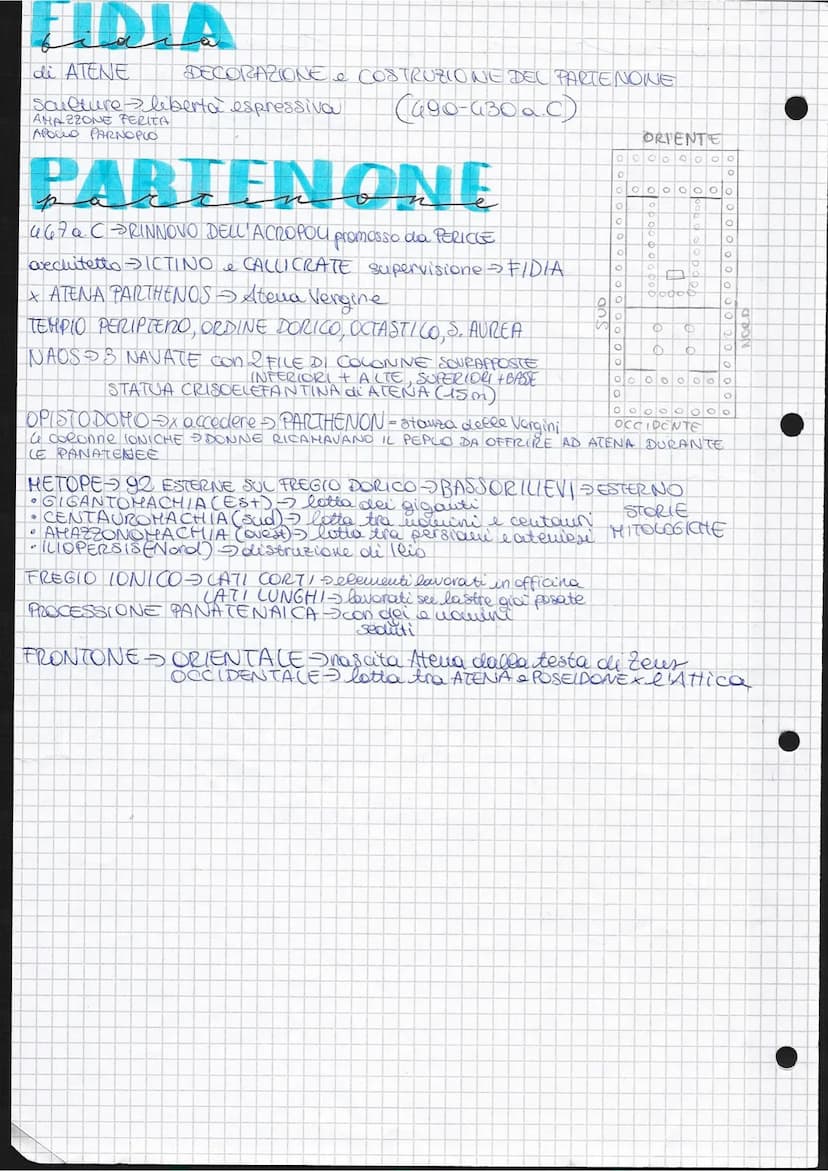 FIDIA
fidia
di ATENE DECORAZIONE e COSTRUZIONE DEL PARTENONE
sculture → libertà espressiva (490-430 a.C)
AMAZZONE FERITA
APOLLO PARNOPIO
ORIENTE
PARTENONE
partenone
447 a C → RINNOVO DELL'ACROPOLI promosso da PERICLE
architetto → ICTINO e CALLICRATE supervisione → FIDIA
x ATENA PARTHENOS → Atena Vergine
SUD
NORD
TEMPIO PERIPTERO, ORDINE DORICO, OCTASTILO, S. AUREA
NAOS → 3 NAVATE con 2 FILE DI COLONNE SOVRAPPOSTE
INFERIORI + ALTE, SUPERIORI + BASSE
STATUA CRISOELEFANTINA di ATENA (15m)
OPISTODOMO → x accedere → PARTHENON = stanza delle Vergini
OCCIDENTE
4 colonne IONICHE → DONNE RICAMAVANO IL PEPLO DA OFFRIRE AD ATENA DURANTE
LE PANATENEE
METOPE → 92 ESTERNE SUL FREGIO DORICO → BASSORILIEVI → ESTERNO
• GIGANTOMACHIA (Est) → lotta dei giganti
STORIE
• CENTAUROMACHIA (sud) → lotta tra uomini e centauri
MITOLOGICHE
• AMAZZONOMACHIA (ovest) → lotta tra persiani e ateniesi
• ILIOPERSIS (Nord) → distruzione di Ilio
FREGIO IONICO → LATI CORTI → elementi lavorati in officina
LATI LUNGHI → lavorati su lastre già posate
PROCESSIONE PANATENAICA → con dei e uomini
seduti
FRONTONE → ORIENTALE → nascita Atena dalla testa di Zeus
OCCIDENTALE → lotta tra ATENA e POSEIDONE x l'Attica